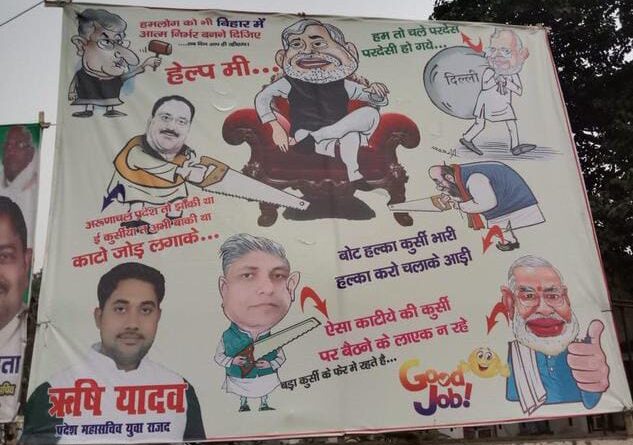 हमलोग को भी बिहार में
आत्म निर्भर बनने दिजिए
हेल्प मी...
हम तो चले परदेस
परदेसी हो गये...
दिल्ली
अरूणाचल प्रदेश तो झाँकी था
ई कुर्सीया त अभी बाकी था
काटो जोड़ लगाके...
बोट हल्का कुर्सी भारी
हल्का करो चलाके आड़ी
ऐसा काटीये की कुर्सी
पर बैठने के लाएक न रहे
बड़ा कुर्सी के फेर में रहते है...
Good
Job!
ऋषि यादव
प्रदेश महासचिव युवा राजद
ता